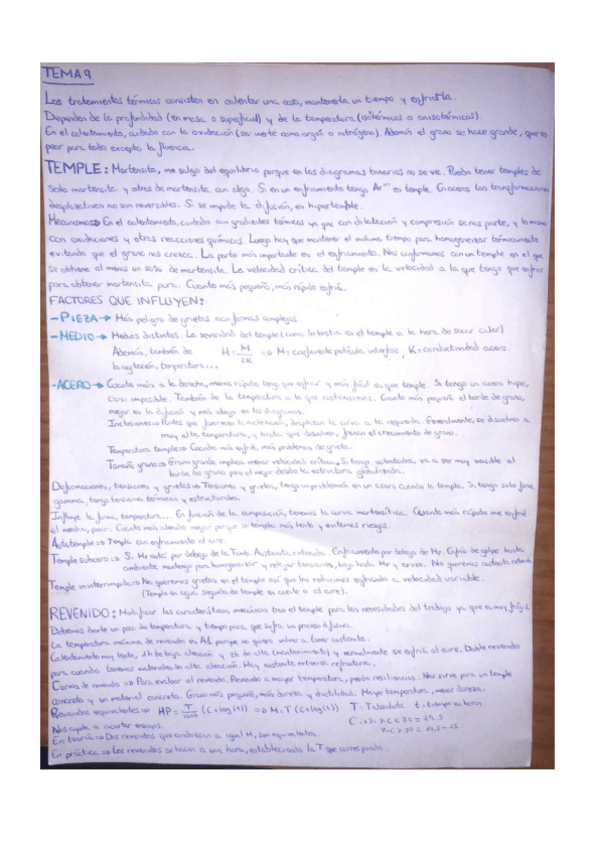 TEMA 9
Los tratamientos térmicos consisten en calentar una cosa, mantenerla un tiempo y enfriarla.
Dependen de la profundidad (en masa o superficial) y de la temperatura (isotérmicos o anisotérmicos).
En el calentamiento, cuidado con la oxidación (ser inerte como argón o nitrógeno). Además el grano se hace grande, que es
peor para todo excepto la fluencia.
TEMPLE: Martensita, me salgo del equilibrio porque en los diagramas binarios no se ve. Puedo tener temples de
solo martensita y otros de martensita con algo. Si en un enfriamiento tengo Ar''' es temple. En aceros las transformaciones
desplazativas no son reversibles. Si se impide la difusión, es hipertemple.
Mecanismos → En el calentamiento, cuidado con gradientes térmicos ya que con dilatación y compresión se nos parte, y lo mismo
con oxidaciones y otras reacciones químicas. Luego hay que mantener el mínimo tiempo para homogeneizar térmicamente
evitando que el grano nos crezca. La parte más importante es el enfriamiento. Nos conformamos con un temple en el que
se obtiene al menos un 50% de martensita. La velocidad crítica del temple es la velocidad a la que tengo que enfriar
para obtener martensita pura. Cuanto más pequeño, más rápido enfría.
FACTORES QUE INFLUYEN:
- PIEZA → Más peligro de grietas con formas complejas
- MEDIO → Medios distintos. La severidad del temple (como de bestia es el temple a la hora de sacar calor)
Además, también de H = M/2K => M = coeficiente película, interfase, K = conductividad acero.
la agitación, temperatura...
- ACERO → Cuanto más a la derecha, menos rápido tengo que enfriar y más fácil es que temple. Si tengo un acero hipo,
casi imposible. También de la temperatura a la que austenizamos. Cuanto más pequeño el borde de grano,
mejor es la difusión y más abajo en los diagramas.
Inclusiones => Puntos que favorecen la nucleación, desplazan la curva a la izquierda. Generalmente, se disuelven a
muy alta temperatura, y hasta que disuelven, frenan el crecimiento de grano.
Temperatura temple => Cuanto más enfríe, más problemas de grieta.
Tamaño grano => Grano grande implica menor velocidad crítica. Si tengo carburos, va a ser muy sensible el
borde de grano pero el mejor desde la estructura globulizada.
Deformaciones, tensiones y grietas => Tensiones y grietas, tengo un problema en un acero cuando lo templo. Si tengo solo fase
gamma, tengo tensiones térmicas y estructurales.
Influye la forma, temperatura... En función de la composición, tenemos la curva martensítica. Cuanto más rápido me enfríe
el medio, peor. Cuanto más aleado mejor porque se templa más lento y evitamos riesgos.
Autotemple => Templa con enfriamiento al aire.
Temple subcero => Si Mf está por debajo de la Tamb. Austenita retenida. Enfriamiento por debajo de Mf. Enfrío de golpe hasta
ambiente mantengo para homogeneizar y relajar tensiones, bajo hasta Mf y enfrío. No queremos austenita retenida
Temple ininterrumpido => No queremos grietas en el temple así que las reducimos enfriando a velocidad variable.
(Temple en agua seguido de temple en aceite o al aire).
REVENIDO: Modificar las características mecánicas tras el temple para las necesidades del trabajo ya que es muy frágil
Debemos darle un poco de temperatura y tiempo para que sufra un proceso difusivo.
La temperatura máxima de revenido es A1 porque no quiero volver a tener austenita.
Calentamiento muy lento, 1h de baja aleación y 2h de alta (mantenimiento) y normalmente se enfría al aire. Doble revenido
para cuando tenemos materiales de alta aleación. Hay austenita retenida refractaria.
Curvas de revenido => Para evaluar el revenido. Revenido a mayor temperatura, pierdo resiliencia. Nos sirve para un temple
concreto y un material concreto. Grano más pequeño, más dureza y ductilidad. Mayor temperatura, menor dureza.
Revenidos equivalentes => HP = T/1000 (C + log(t)) => M = T (C + log(t)) T = Tabsoluta t = tiempo en horas
Nos ayuda a acortar ensayos.
En teoría => Dos revenidos que conduzcan a igual M, son equivalentes.
En práctica => Los revenidos se hacen a una hora, estableciendo la T que corresponda.